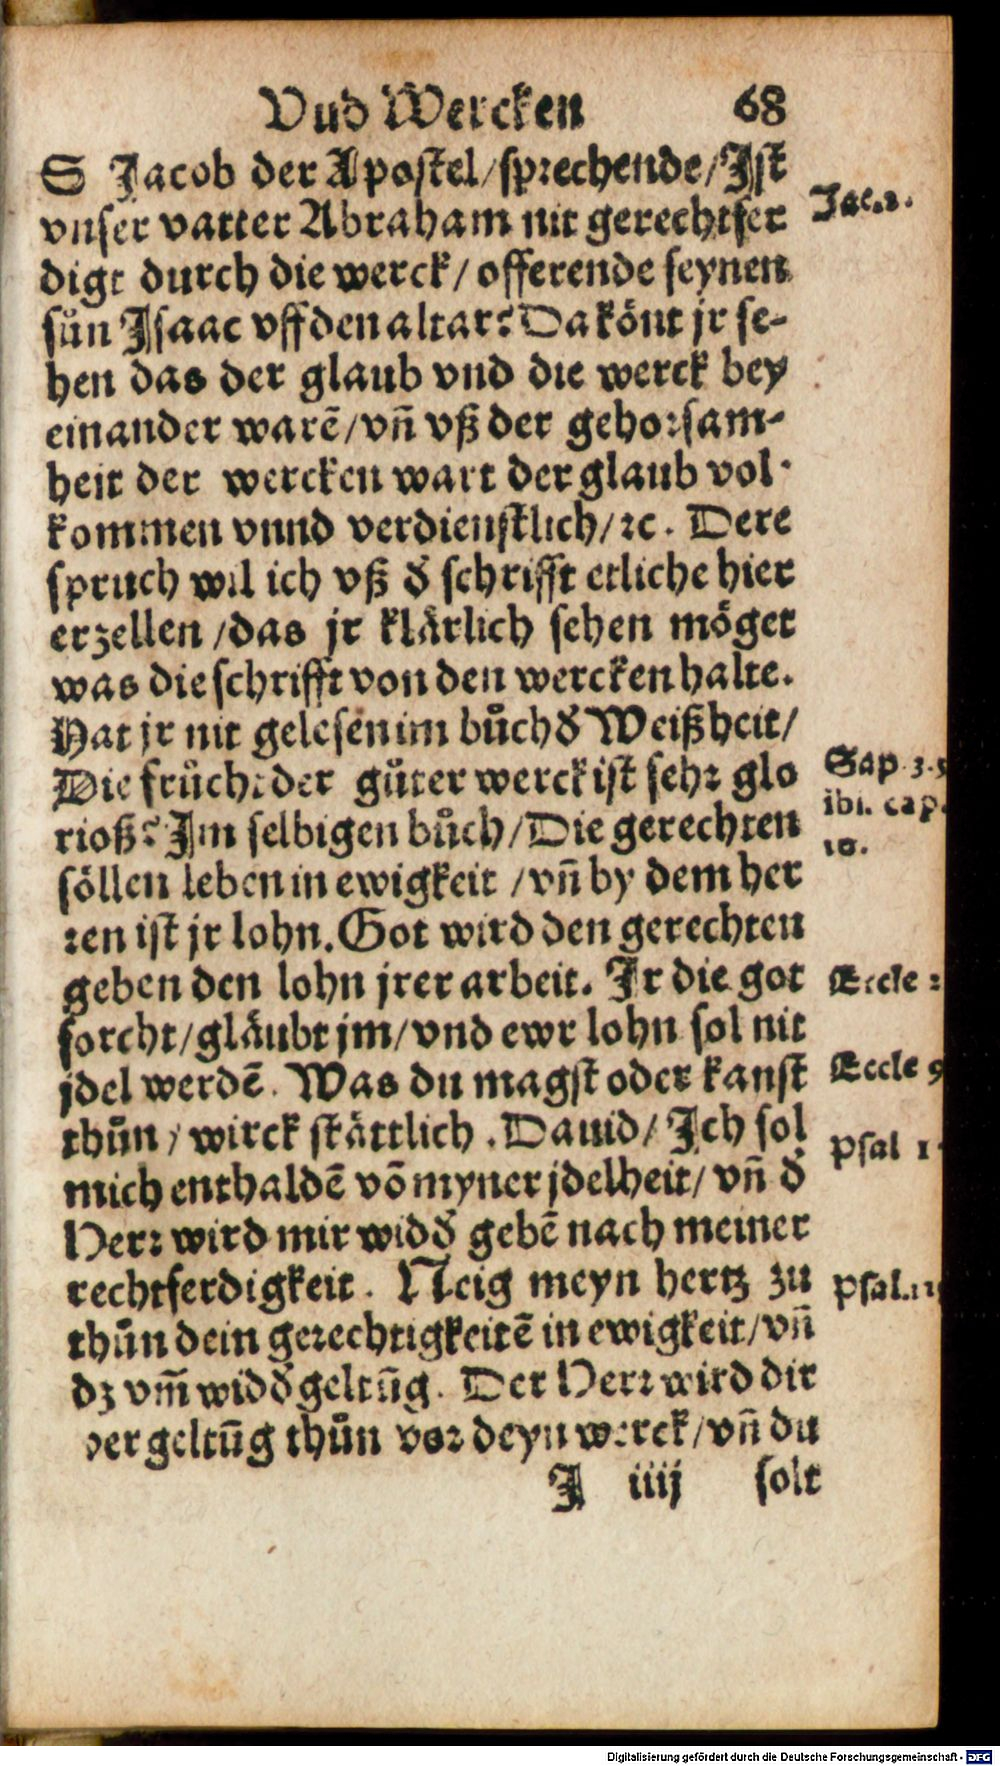 Vnd Wercken 68
S Jacob der Apostel/sprechende/Ist
vnser vatter Abraham nit gerechtfer
digt durch die werck/ offerende seynen
sůn Isaac vff den altar? Da könt jr se-
hen das der glaub vnd die werck bey
einander warẽ/vñ vß der gehorsam-
heit der wercken wart der glaub vol-
kommen vnnd verdienstlich/ꝛc. Dere
spruch wil ich vß ð schrifft etliche hier
erzellen/das jr klärlich sehen möget
was die schrifft von den wercken halte.
Hat jr nit gelesen im bůch ð Weißheit/
Die frůcht der gůter werck ist sehr glo
rioß? Im selbigen bůch/Die gerechten
söllen leben in ewigkeit /vñ by dem her
ren ist jr lohn. Got wird den gerechten
geben den lohn jrer arbeit. Ir die got
forcht/gläubt jm/vnd ewr lohn sol nit
jdel werdẽ. Was du magst oder kanst
thůn/ wirck stättlich. Dauid/ Ich sol
mich enthaldẽ võ myner jdelheit/ vñ ð
Herr wird mir widð gebẽ nach meiner
rechtferdigkeit. Neig meyn hertz zu
thůn dein gerechtigkeitẽ in ewigkeit/vñ
dz vm̃ widð geltũg. Der Herr wird dir
vergeltũg thůn vor deyn werck/vñ du
J iiij solt
Jac.2.
Sap 3.5
ibi. cap.
10.
Eccle 2
Eccle 9
Psal 1
Psal.11
Digitalisierung gefördert durch die Deutsche Forschungsgemeinschaft - DFG